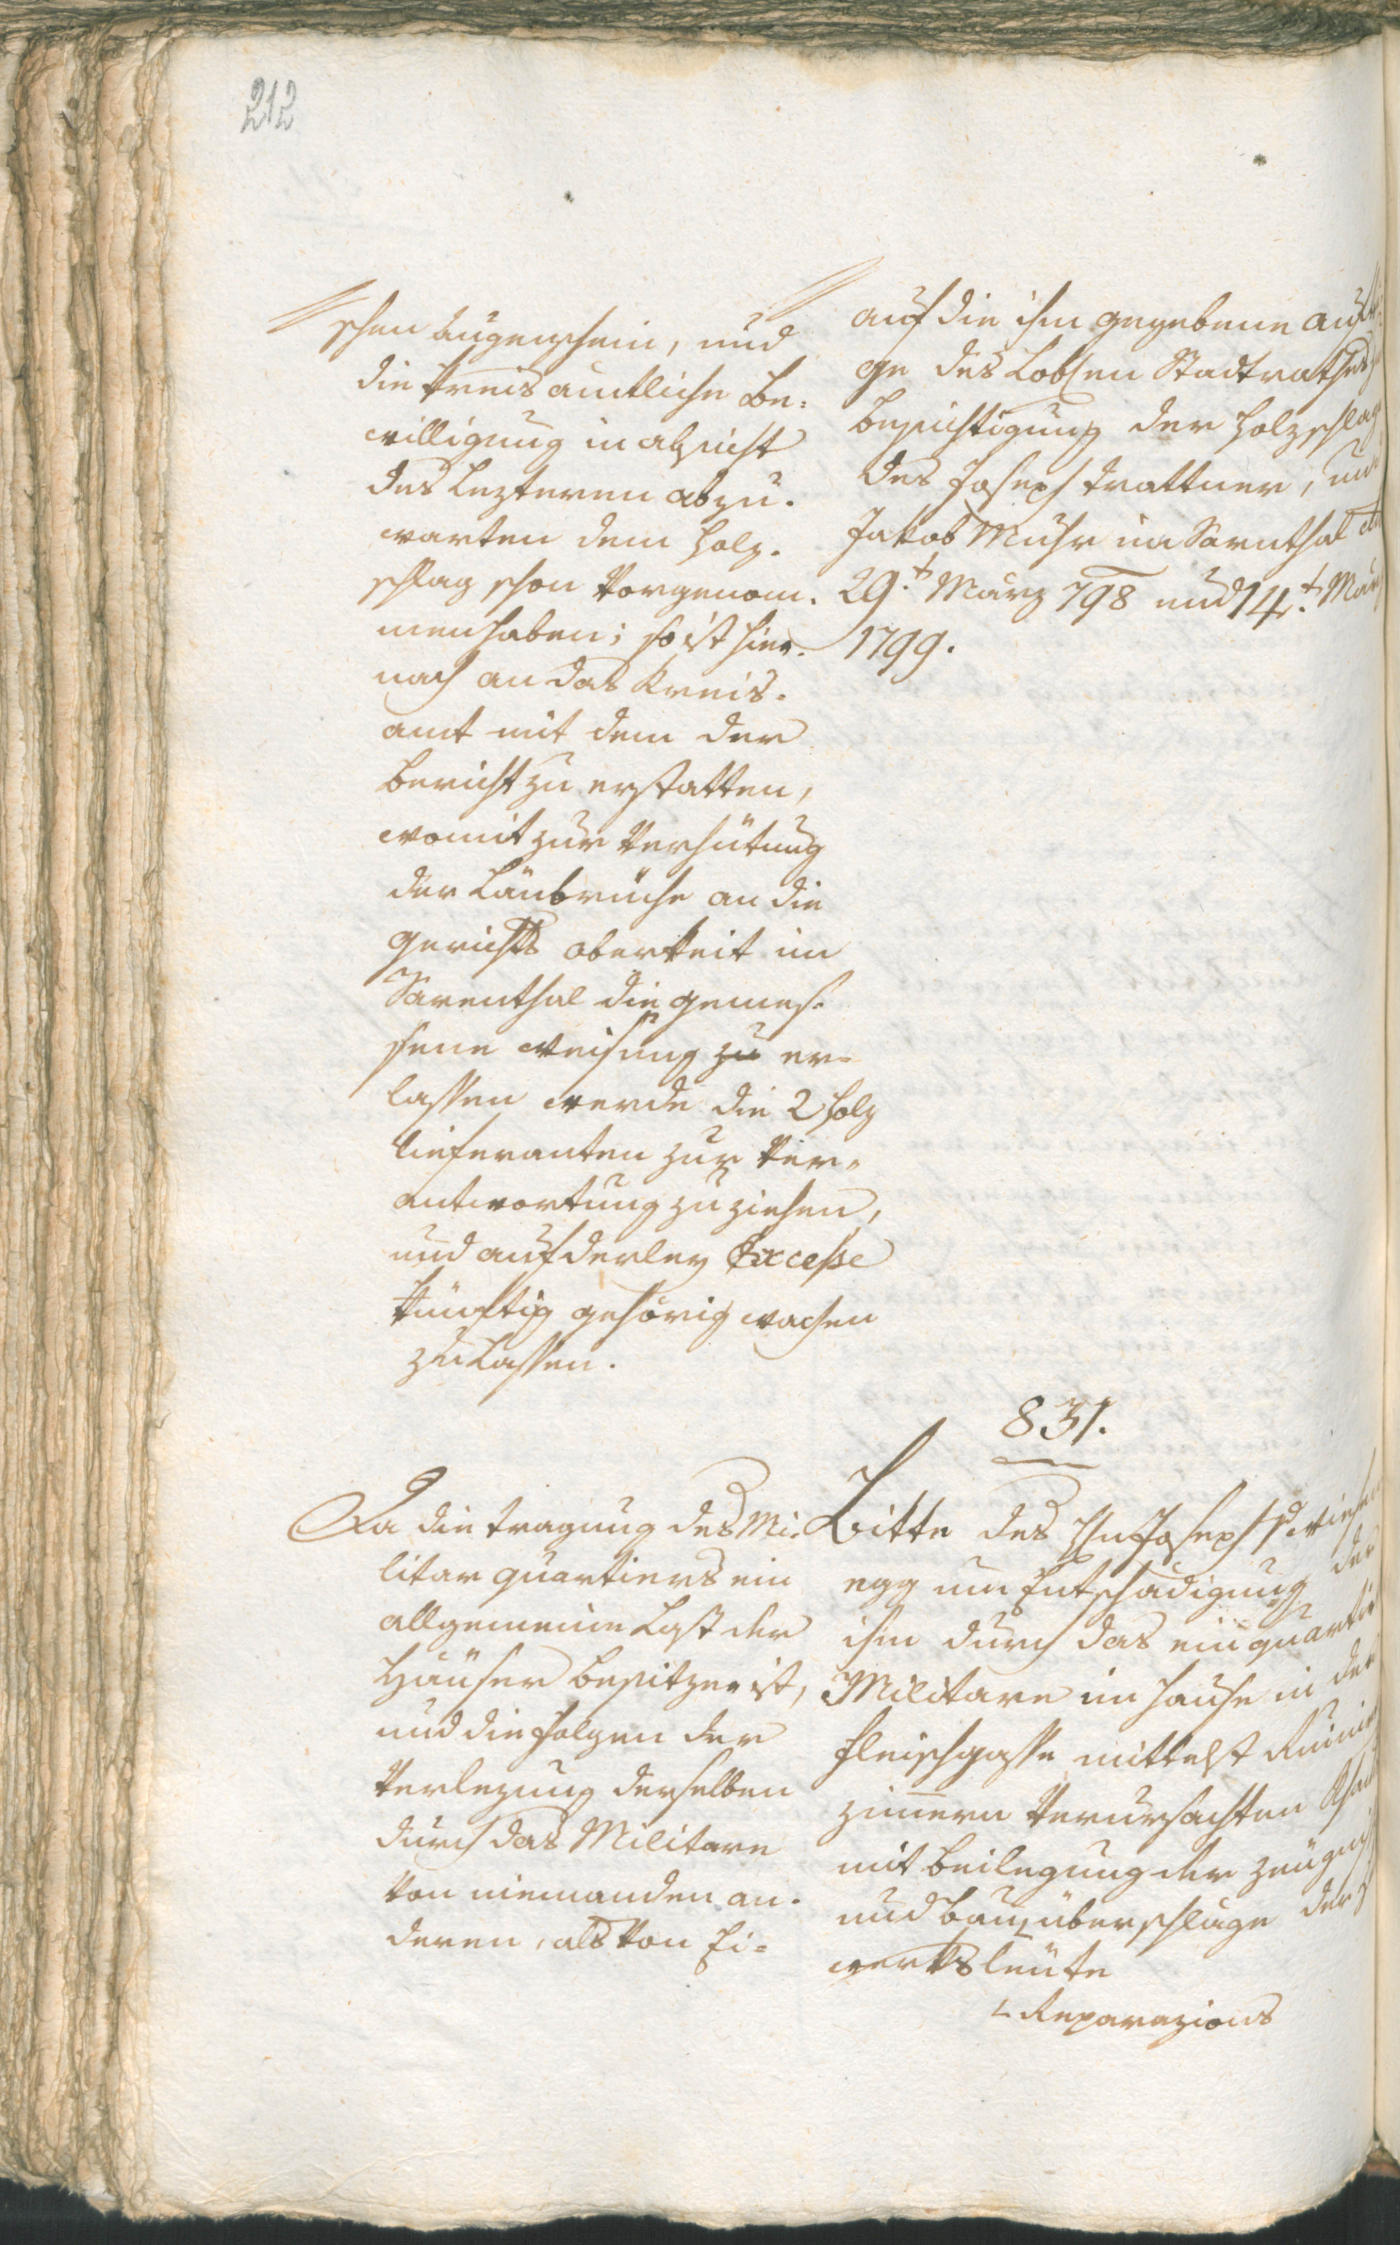 212
schen Augenschein, und
die kreisamtliche Be¬
willigung in absicht
des Lezteren abzu¬
warten dem Holz¬
schlag schon vorgenom¬
men haben; so ist hier¬
nach an das Kreis¬
amt mit dem der
Bericht zu erstatten,
womit zur Verhütung
der Länbrüche an die
Gerichts Oberkeit im
Sarenthal die gemes¬
sene Weisung zu er¬
lassen werde die 2 Holz
lieferanten zur Ver¬
antwortung zu ziehen,
und auf derley Excesse
künftig gehörig wachen
zu lassen.
auf die ihm gegebene
ge des Lobl:en Stadtrathes
besichtigung der Holzschlag
des Joseph Trattner, und
Jakob Muhr im Sarnthal
29.t März 798 und 14.t März
1799.
831.
Da die tragung des Mi¬
litar quartiers ein
allgemeine Last der
Häuser besitzer ist,
und die folgen der
Verlezung derselben
durch das Militare
von niemanden an¬
deren, als von Ei¬
Bitte des H:n Joseph v Wiesen
egg um Entschädigung der
ihm durch das einquartir
Militare im Hause in der
Fleischgasse mittelst Ruini
zimmern verursachten
mit beilegung der Zeügniß
und Bau überschläge der
werksleüte
Reparazions